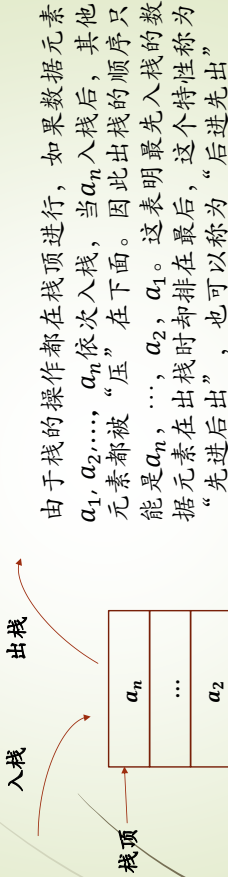 由于栈的操作都在栈顶进行，如果数据元素
a₁, a₂,…, aₙ依次入栈，当aₙ入栈后，其他
元素都被“压”在下面。因此出栈的顺序只
能是aₙ, …, a₂, a₁。这表明最先入栈的数
据元素在出栈时却排在最后，这个特性称为
“先进后出”，也可以称为“后进先出”
入栈
出栈
栈顶
aₙ
…
a₂